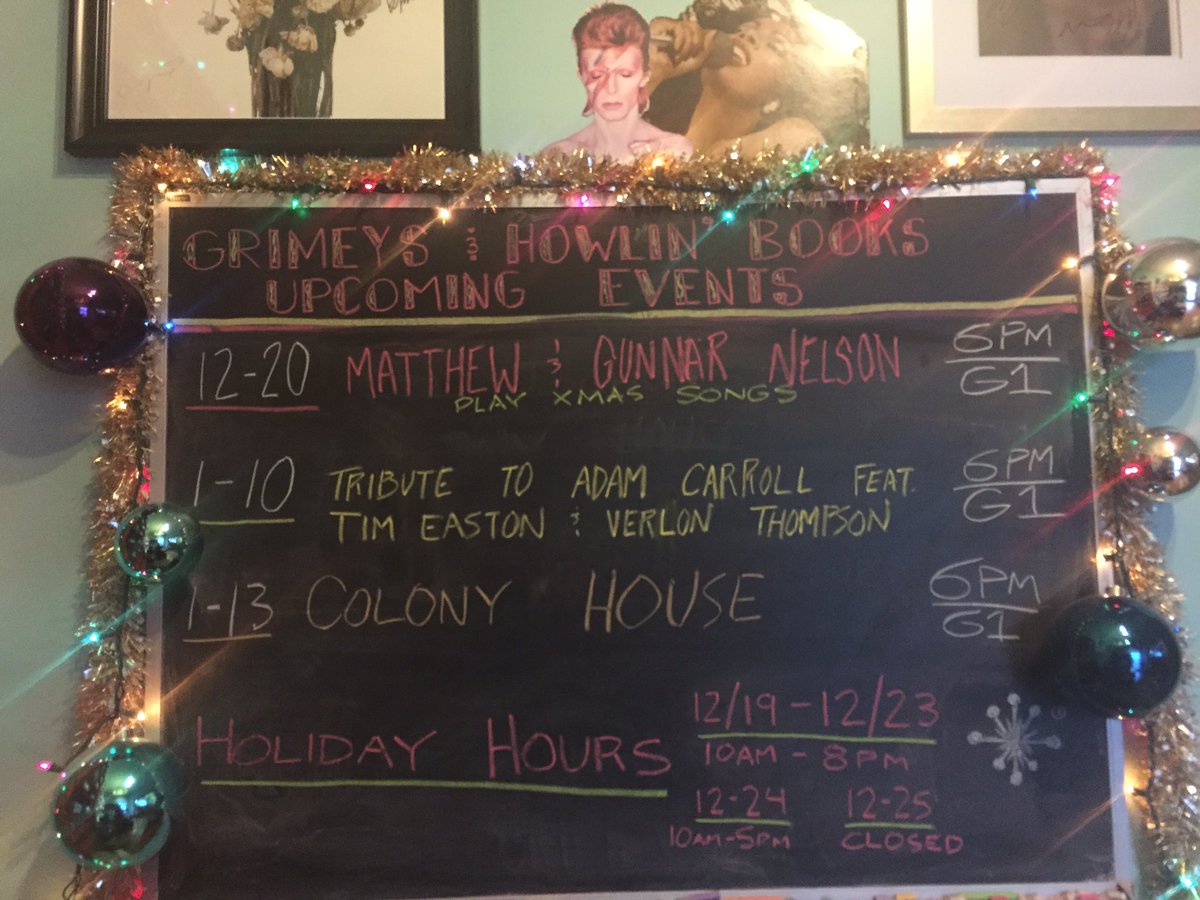 GRIMEYS & HOWLIN' BOOKS
UPCOMING EVENTS
12-20 MATTHEW & GUNNAR NELSON 6PM
PLAY XMAS SONGS G1
1-10 TRIBUTE TO ADAM CARROLL FEAT. 6PM
TIM EASTON & VERLON THOMPSON G1
1-13 COLONY HOUSE 6PM
G1
HOLIDAY HOURS 12/19-12/23
10AM - 8PM
12-24 12-25
10AM-5PM CLOSED